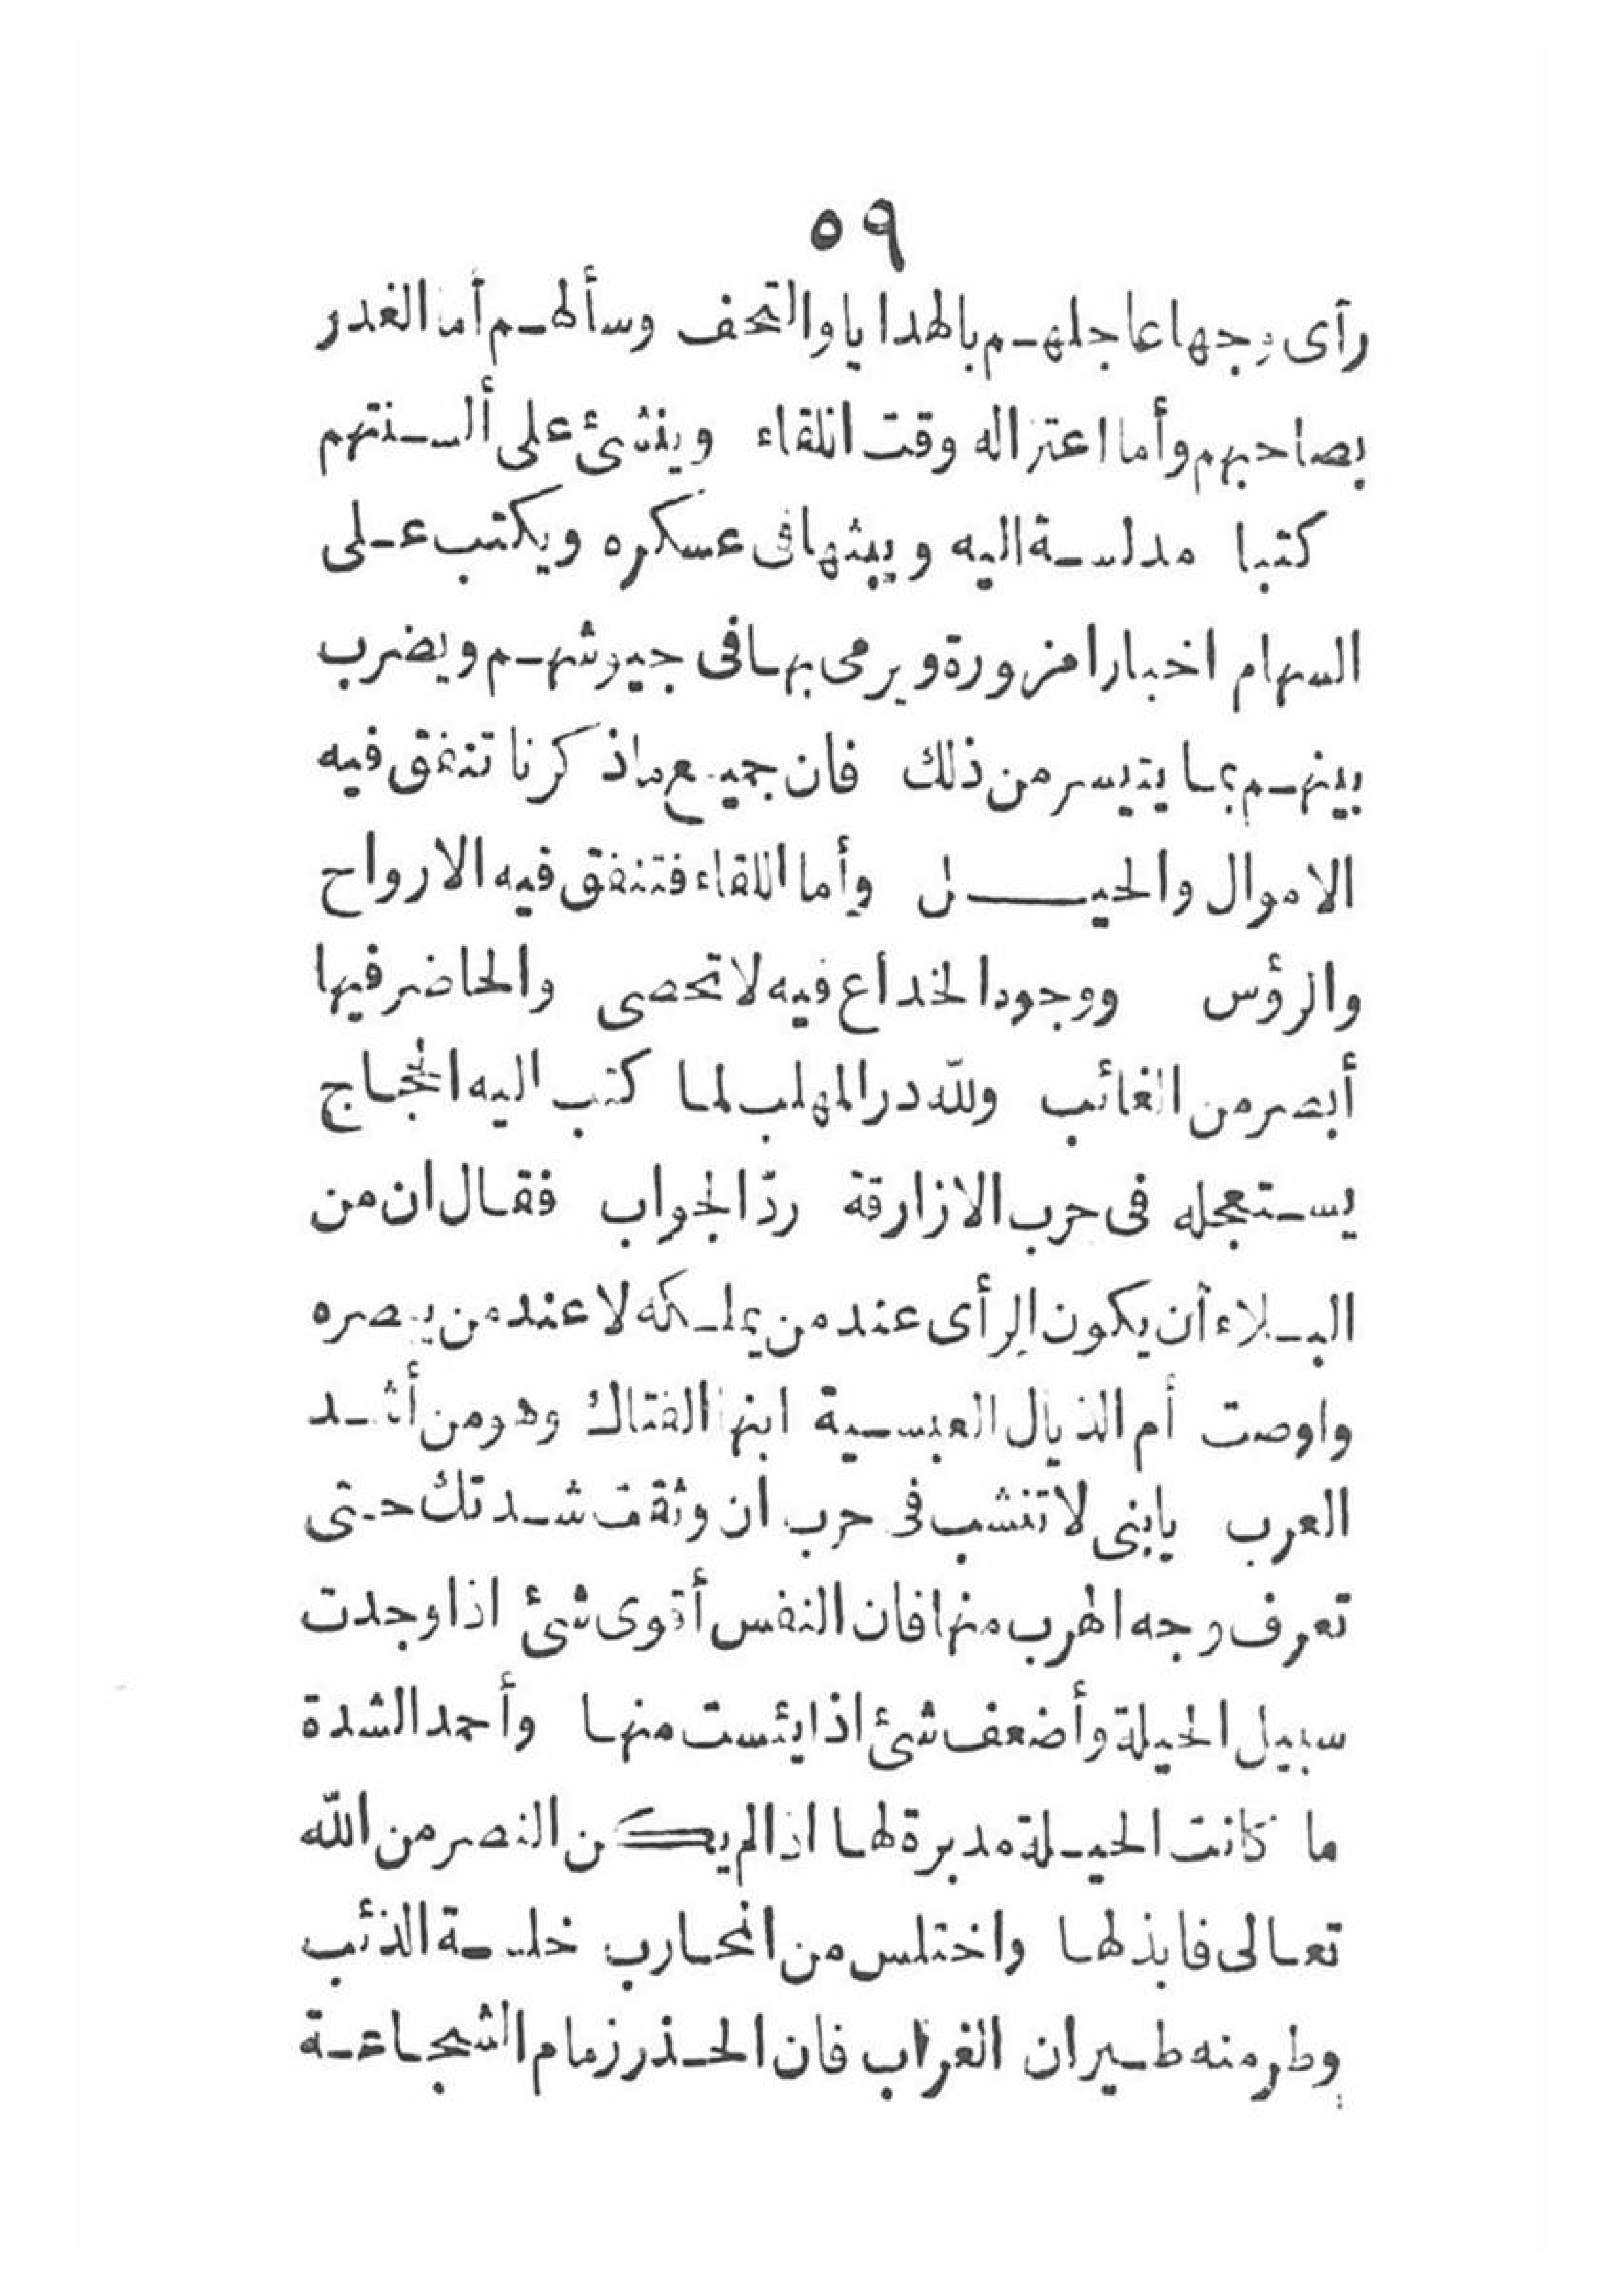 ٥٩
رآى وجها عاجلهم بالهدايا والتحف وسألهم أما الغدر
بصاحبهم وأما اعتزاله وقت اللقاء وينشئ على ألسنتهم
كتبا مدلسة اليه ويبثها فى عسكره ويكتب على
السهام اخبارا مزورة ويرمى بها فى جيوشهم ويضرب
بينهم بما يتيسر من ذلك فان جميع ماذكرنا تنفق فيه
الاموال والحيل وأما اللقاء فتنفق فيه الارواح
والرؤس ووجود الخداع فيه لا تحصى والحاضر فيها
أبصر من الغائب ولله در المهلب لما كتب اليه الحجاج
يستعجله فى حرب الازارقة ردّ الجواب فقال ان من
البلاء أن يكون الرأى عند من يملكه لا عند من يبصره
واوصت أم الذيال العبسية ابنها الفتاك وهو من أشد
العرب يابنى لا تنشب فى حرب ان وثقت شدتك حتى
تعرف وجه الهرب منها فان النفس أقوى شئ اذا وجدت
سبيل الحيلة وأضعف شئ اذا يئست منها وأحمد الشدة
ما كانت الحيلة مدبرة لها اذا لم يكن النصر من الله
تعالى فابذلها واختلس من المحارب خلسة الذئب
وطر منه طيران الغراب فان الحذر زمام الشجاعة